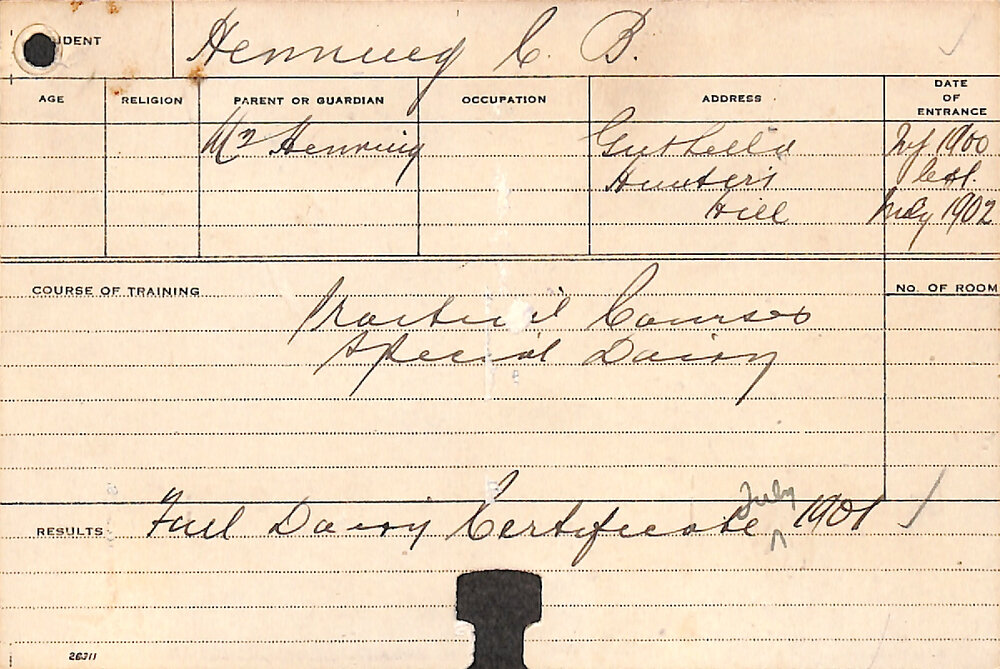 STUDENT Henning C. B.
AGE RELIGION PARENT OR GUARDIAN OCCUPATION ADDRESS DATE OF ENTRANCE
Mr Henning 1900
Hunter's
Hill July 1902
COURSE OF TRAINING NO. OF ROOM
Practical Courses
Special Dairy
July
RESULTS Full Dairy Certificate ^ 1901
26311